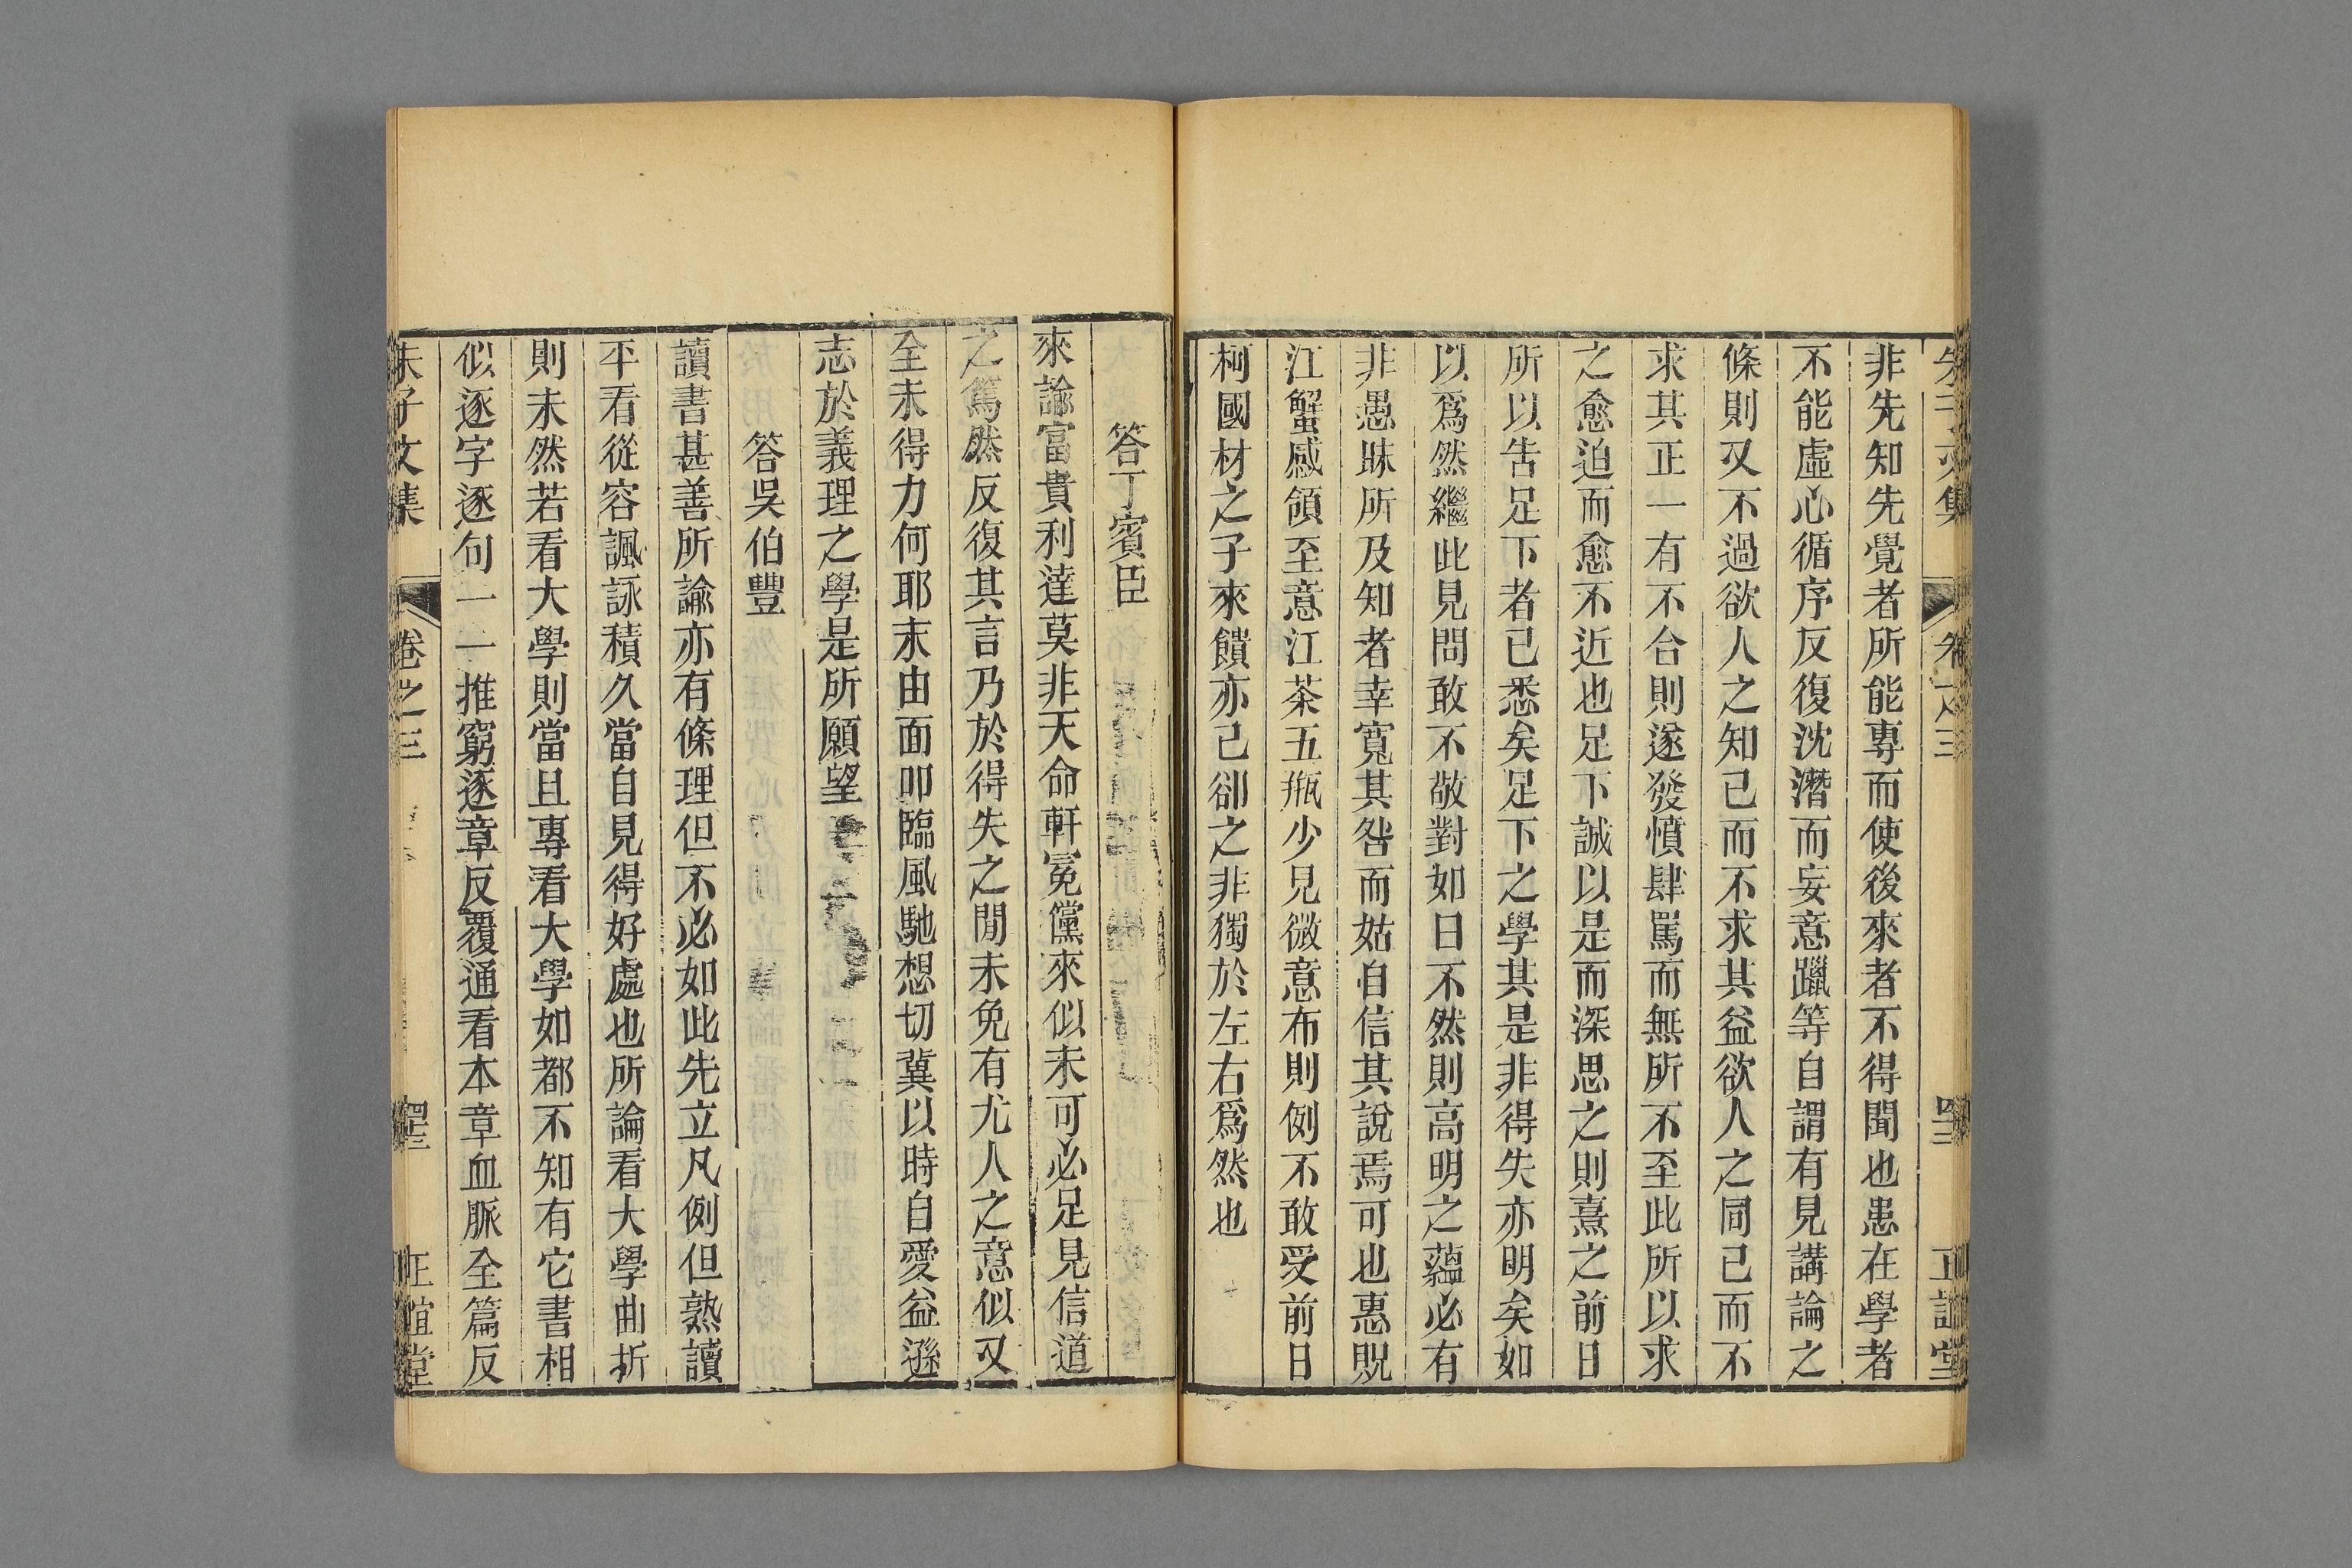 朱子文集 卷之三 正誼堂
非先知先覺者所能專而使後來者不得聞也患在學者
不能虛心循序反復沈潛而妄意躐等自謂有見講論之
條則又不過欲人之知已而不求其益欲人之同已而不
求其正一有不合則遂發憤肆罵而無所不至此所以求
之愈迫而愈不近也足下誠以是而深思之則熹之前日
所以告足下者已悉矣足下之學其是非得失亦明矣如
以爲然繼此見問敢不敬對如曰不然則高明之蘊必有
非愚昧所及知者幸寬其咎而姑自信其說焉可也惠貺
江蟹感領至意江茶五瓶少見微意布則例不敢受前日
柯國材之子來饋亦已卻之非獨於左右爲然也
答丁賓臣
來諭富貴利達莫非天命軒冕儻來似未可必足見信道
之篤然反復其言乃於得失之閒未免有尤人之意似又
全未得力何耶末由面叩臨風馳想切冀以時自愛益遜
志於義理之學是所願望
答吳伯豐
讀書甚善所諭亦有條理但不必如此先立凡例但熟讀
平看從容諷詠積久當自見得好處也所論看大學曲折
則未然若看大學則當且專看大學如都不知有它書相
似逐字逐句一一推窮逐章反覆通看本章血脈全篇反
朱子文集 卷之三 正誼堂